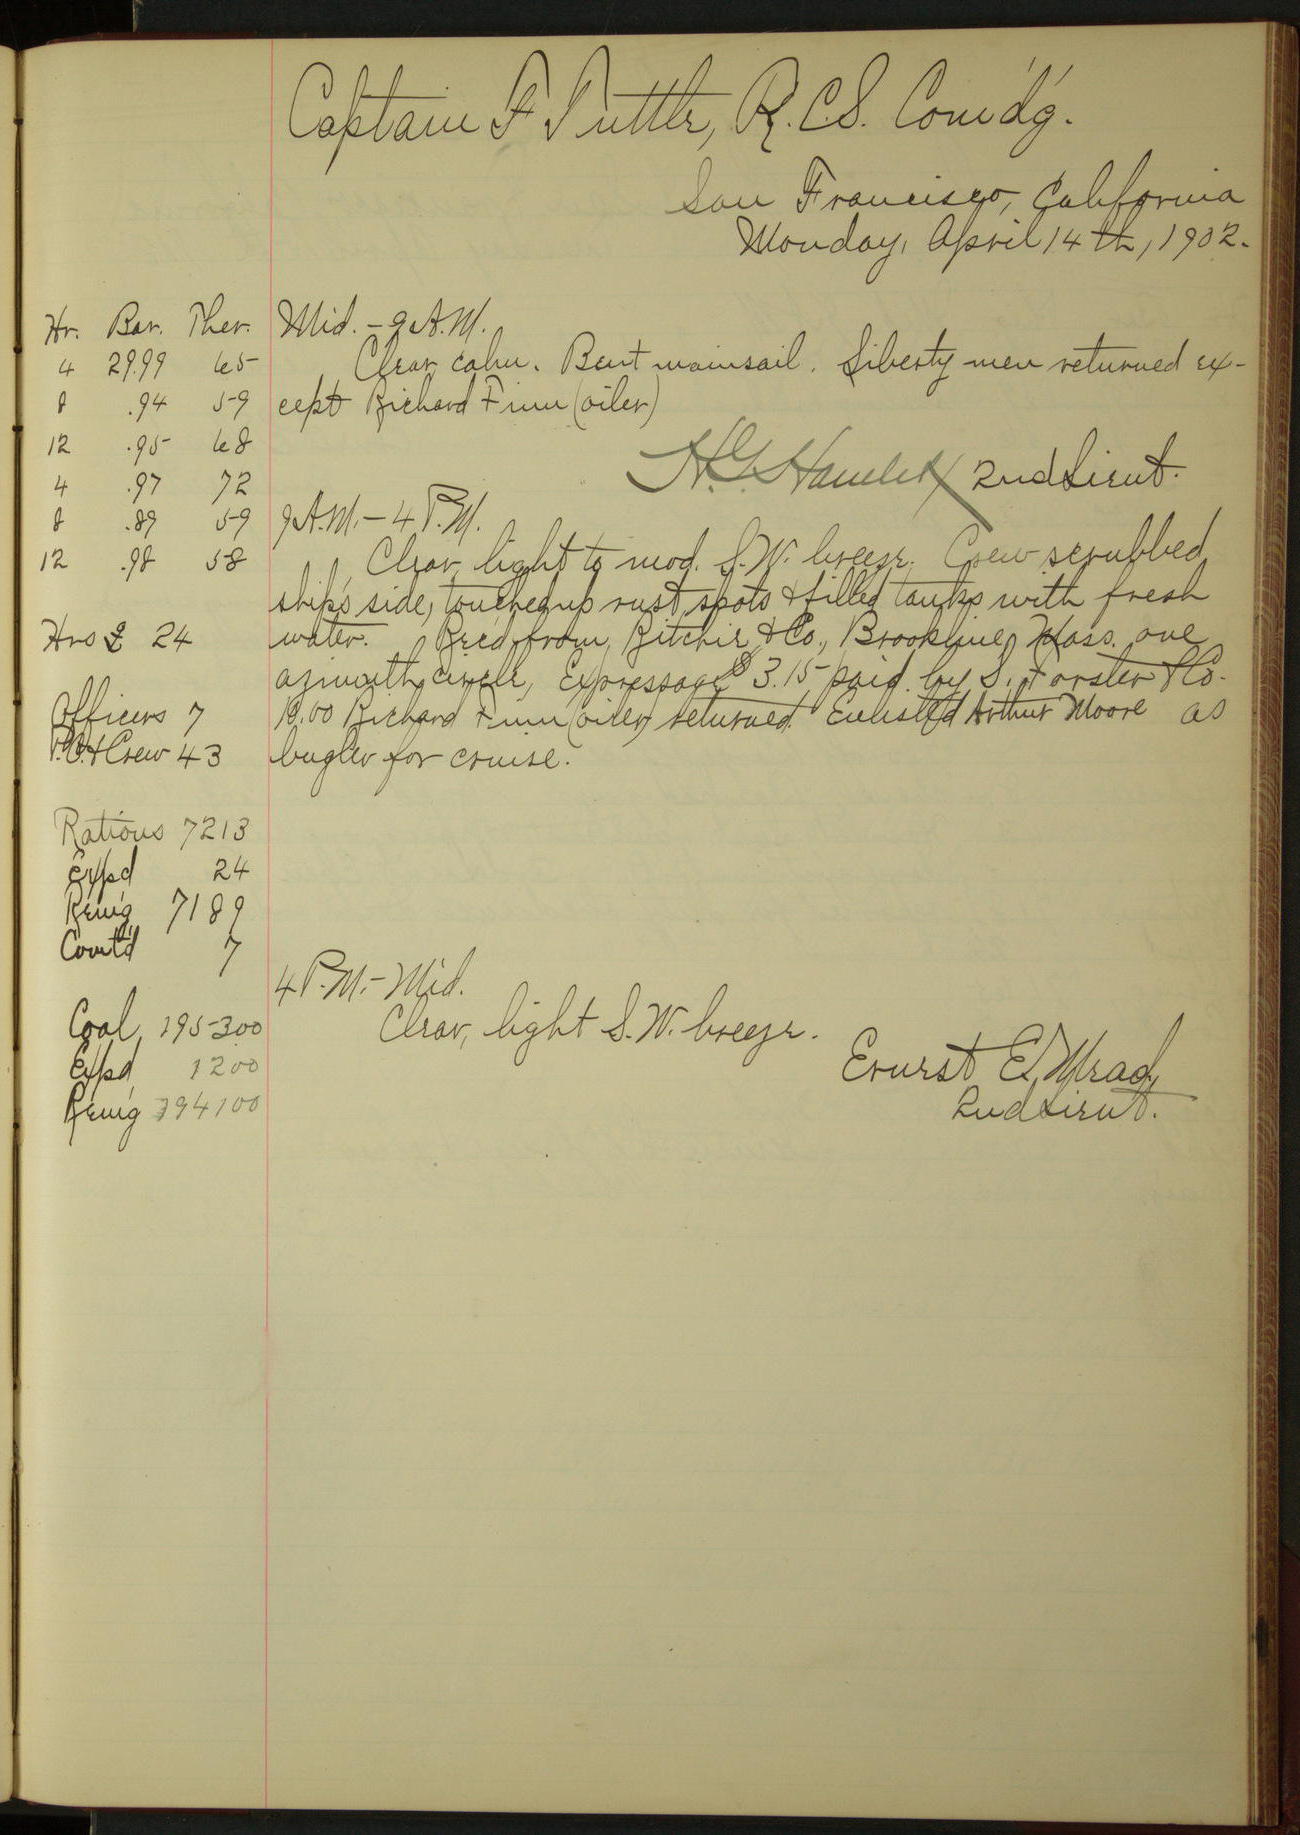 Captain F Tuttle, R.C.S. Com'd'g.
San Francisco, California
Monday, April 14th, 1902.
Hr. Bar. Ther.
4 29.99 65
8 .94 59
12 .95 68
4 .97 72
8 .89 59
12 .98 58
Hrs 24
Officers 7
P.O. & Crew 43
Rations 7213
Exp'd 24
Rem'g 7189
Com't'd 7
Coal 195300
Exp'd 1200
Rem'g 194100
Mid. - 9 A.M.
Clear, calm. Bent mainsail. Liberty men returned ex-
cept Richard Finn (oiler)
H.G. Hamlet 2nd Lieut.
9 A.M. - 4 P.M.
Clear, light to mod. S.W. breeze. Crew scrubbed
ship's side, touched up rust spots & filled tanks with fresh
water. Rec'd from Ritchie & Co., Brookline, Mass. one
azimuth circle, Expressage $3.15 paid by S. Forster & Co.
10.00 Richard Finn (oiler) returned. Enlisted Arthur Moore as
bugler for cruise.
4 P.M. - Mid.
Clear, light S.W. breeze.
Ernest E. Mead,
2nd Lieut.